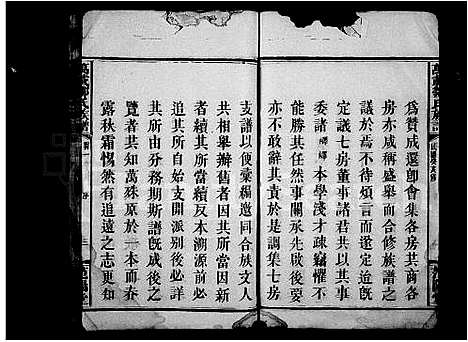 爲贊成還卽會集各房共商各
房亦咸稱盛舉而合修族譜之
議於焉不待煩言而遂定迨旣
定議七房董事諸君共以其事
委諸 本學淺才疎竊懼不
能勝其任然事關承先啟後要
亦不敢辭其責於是調集七房
支譜以便彙編邀同合族文人
共相舉辦舊者因其所當因新
者續其所當續反本溯源前必
追其所自始支開派別後必詳
其所由分務期斯譜旣成後之
覽者共知萬殊原於一本而春
露秋霜愓然有追遠之志更知